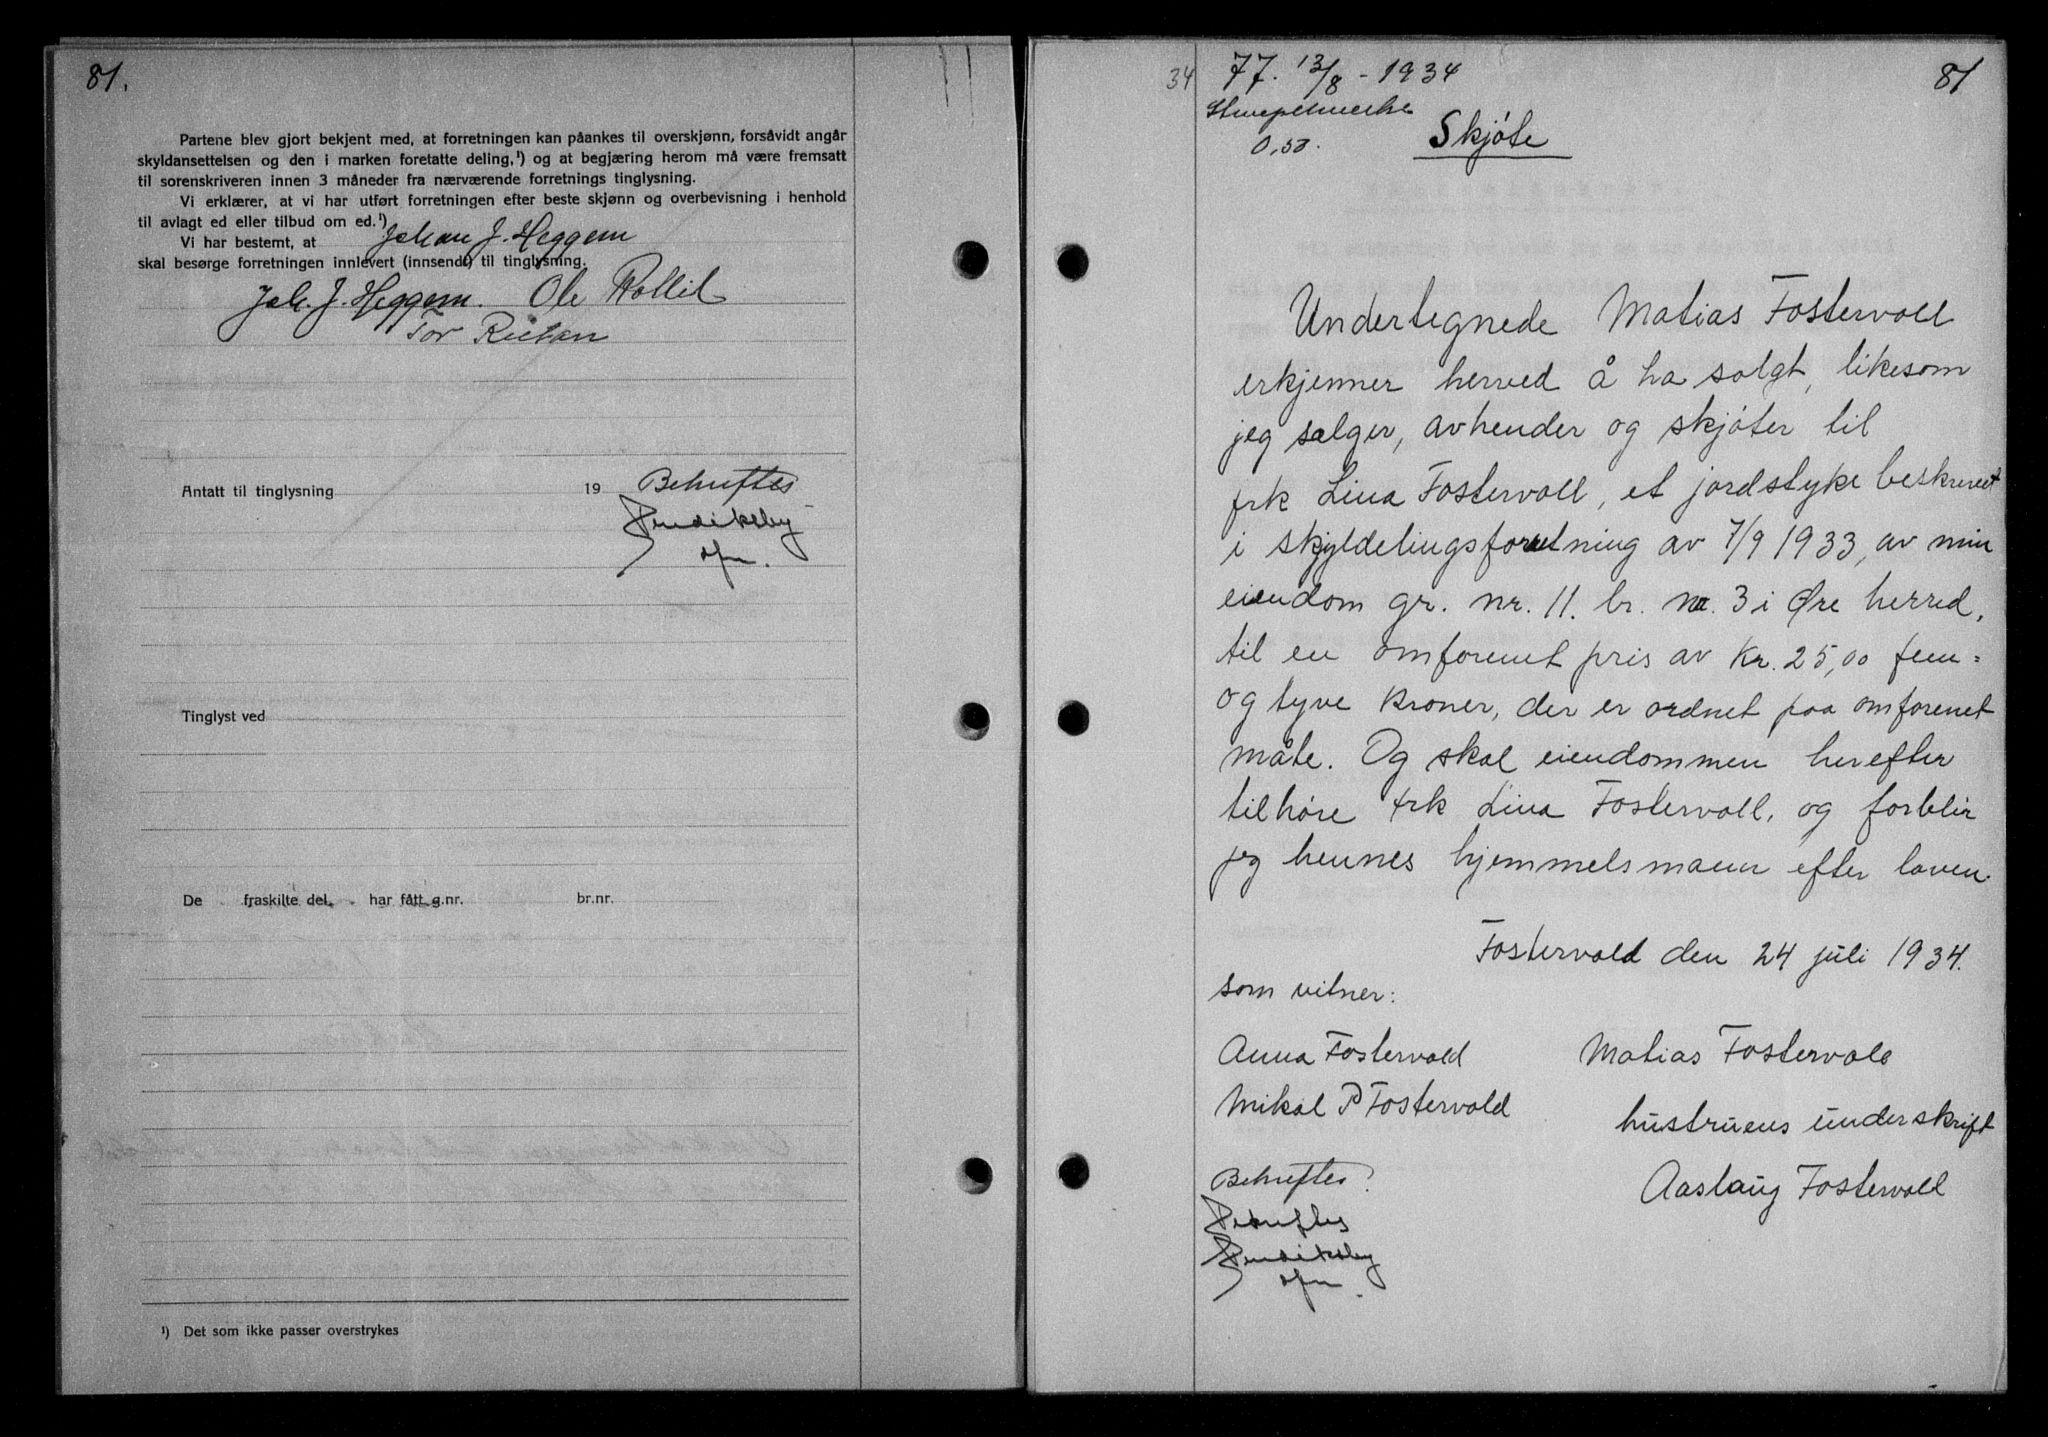 81.
Partene blev gjort bekjent med, at forretningen kan påankes til overskjønn, forsåvidt angår
skyldansettelsen og den i marken foretatte deling,¹) og at begjæring herom må være fremsatt
til sorenskriveren innen 3 måneder fra nærværende forretnings tinglysning.
Vi erklærer, at vi har utført forretningen efter beste skjønn og overbevisning i henhold
til avlagt ed eller tilbud om ed.¹)
Vi har bestemt, at Johan J. Heggem
skal besørge forretningen innlevert (innsendt) til tinglysning.
Joh. J. Heggem. Ole
Tor
Antatt til tinglysning 19
Bekreftes
Tinglyst ved
De fraskilte del har fått g.nr. br.nr.
¹) Det som ikke passer overstrykes
34 77. 13/8 - 1934 81
Stempelmerke
0,50.
Skjøte
Undertegnede Matias Fostervoll
erkjenner herved å ha solgt, likesom
jeg sælger, avhender og skjøter til
frk Lina Fostervoll, et jordstyke beskrevet
i skyldelingsforretning av 7/9 1933, av min
eiendom gr. nr. 11. br. nr. 3 i Øre herred,
til en omforenet pris av Kr. 25,00 fem=
og tyve kroner, der er ordnet paa omforenet
måte. Og skal eiendommen herefter
tilhøre frk Lina Fostervoll, og forblir
jeg hennes hjemmelsmann efter loven.
Fostervold den 24 juli 1934.
som vitner:
Anna Fostervold Matias Fostervoll
Mikal P Fostervold
hustruens underskrift
Aaslaug Fostervoll
Bekreftes.
Bekreftes